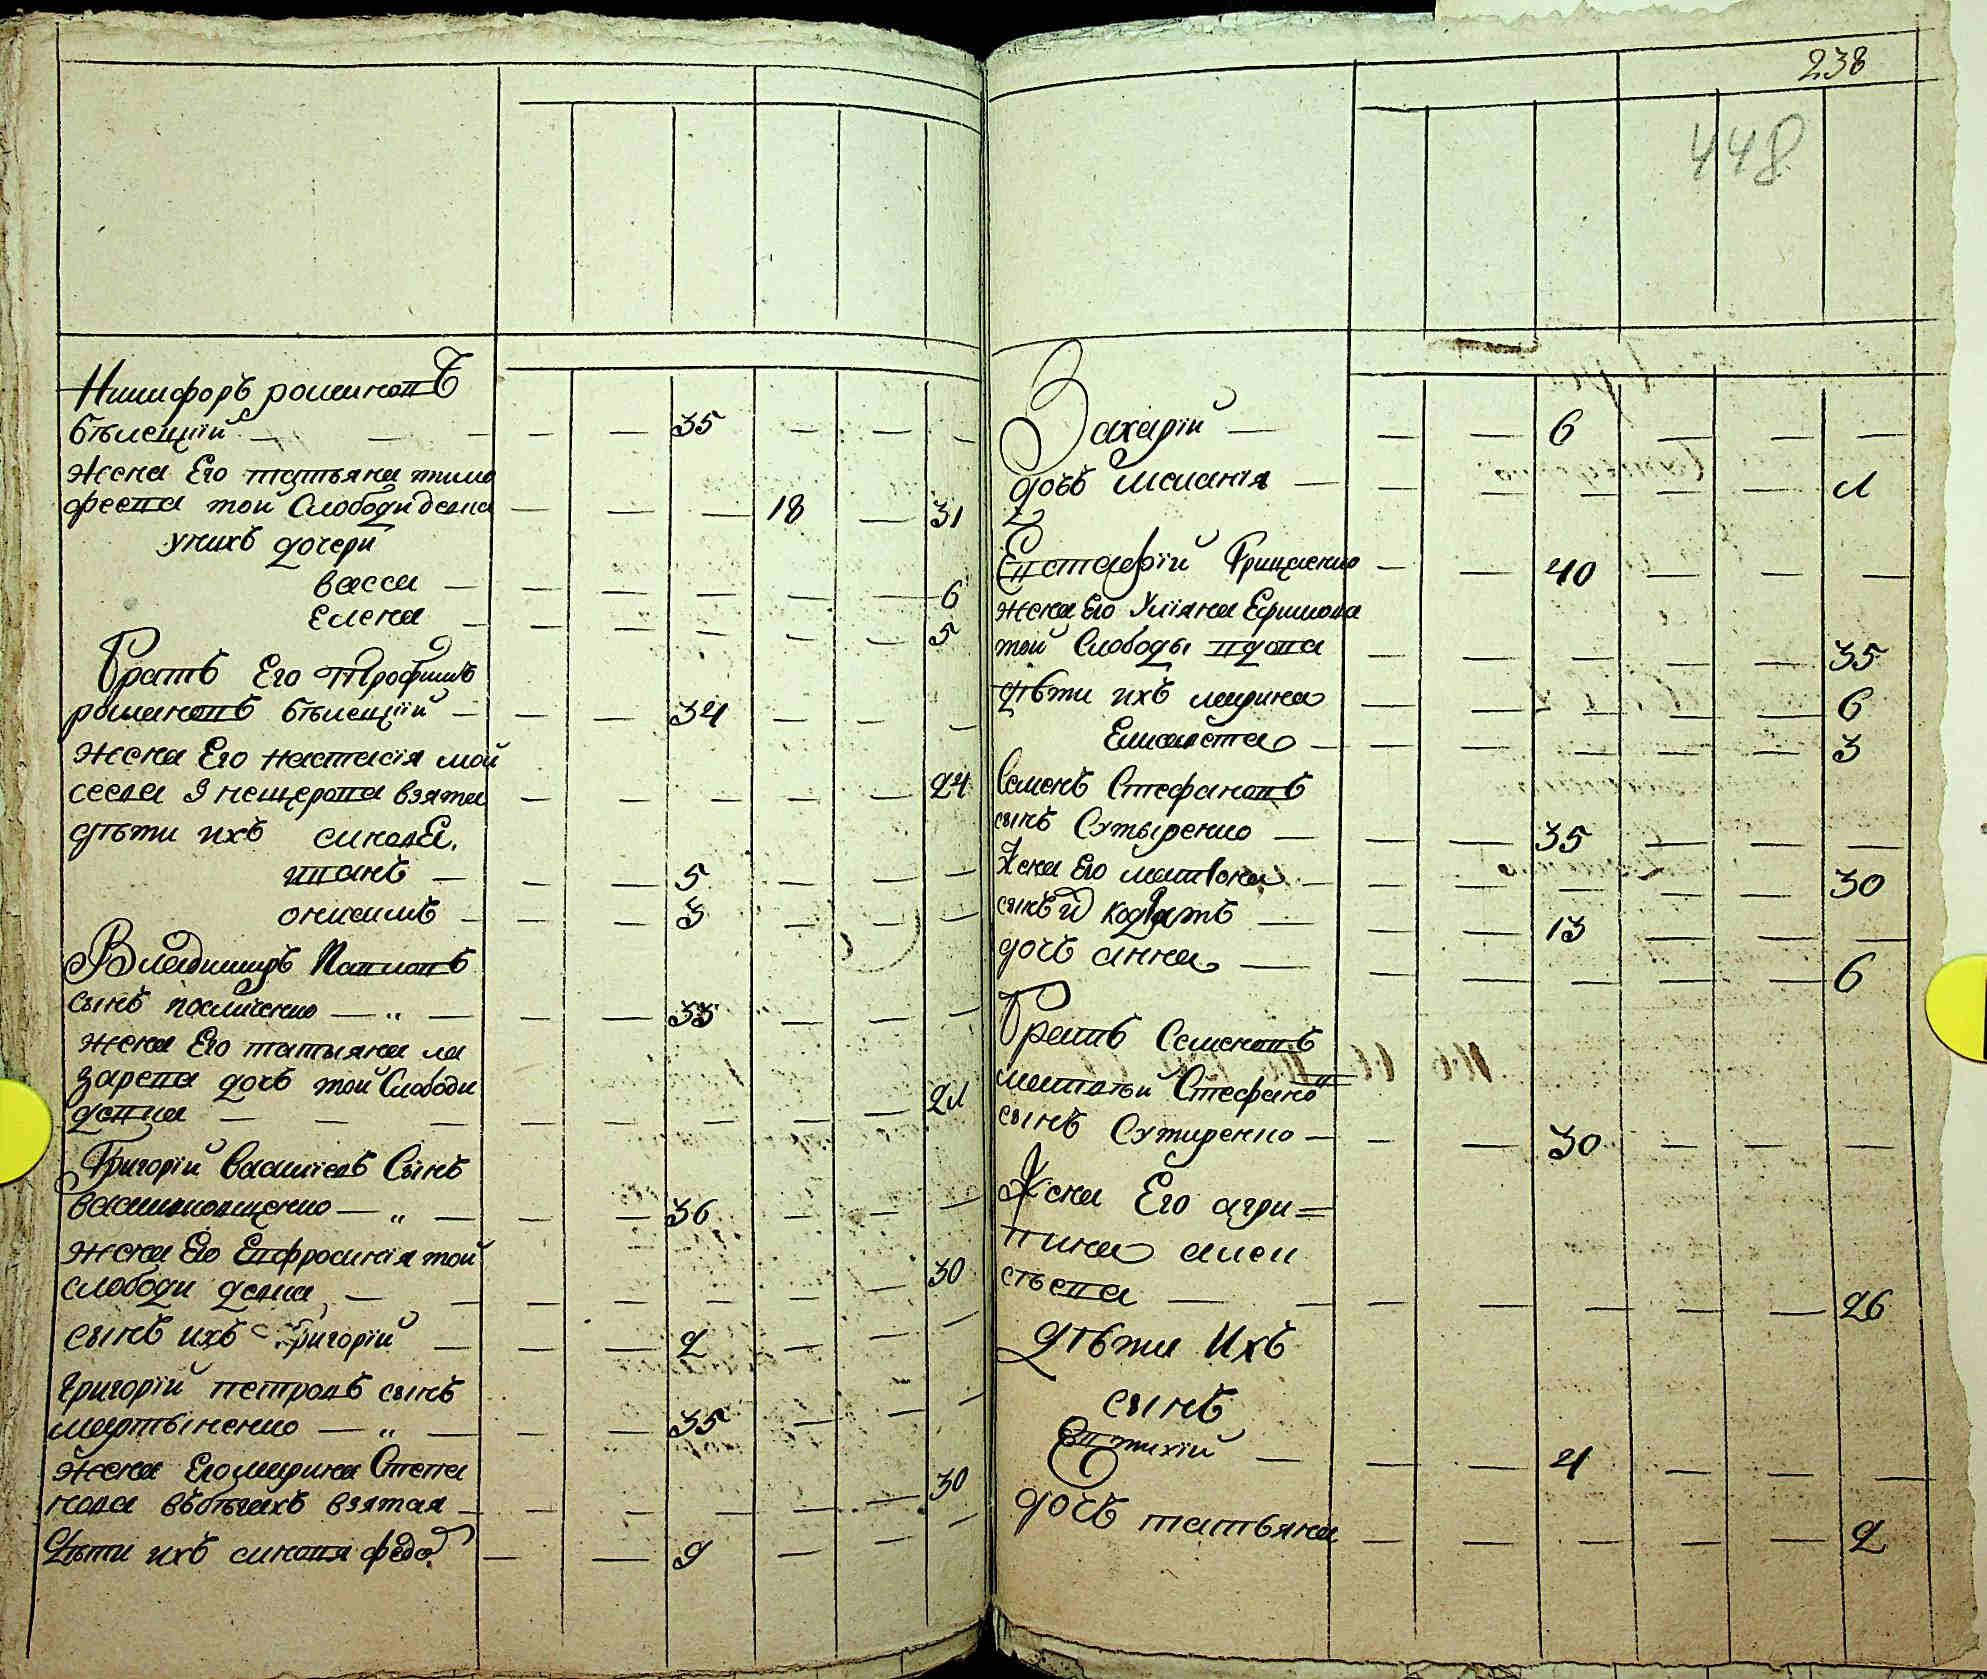 Никифоръ романовъ
бѣлецкій — 35
жена Его татьяна тимо
феева той Слободи девка 18 31
у нихъ дочери
васса — 6
Елена — 5
Братъ Его Трофимъ
романовъ бѣлецкій — 34
жена Его настасія мой
взята 24
дѣти ихъ
иванъ — 5
онисимъ — 3
Владимиръ Павловъ
сынъ — 33
жена Его татьяна ла
зарева дочъ той Слободи
24
Григорій васильевъ Сынъ
василковщенко — 36
жена Его Евфросинія той
слободи девка — 30
сынъ ихъ Григорій — 2
Григорій петровъ сынъ
мартыненко — 35
жена Его марина Степа
нова взятая — 30
Дѣти ихъ синовя федо 9
238
448
Захарій — 6
дочь маланія —
Евстафій Грищенко 40
жена Его Уліяна Ефимова
той Слободы вдова 35
дѣти ихъ марина 6
Елисавета — 3
Семенъ Стефановъ
сынъ Сутыренко — 35
Жена Его 30
сынъ 13
дочь анна — 6
Братъ Семеновъ
матвѣй Стефано
сынъ Сутиренко — 30
Жена Его агри=
пина алек
сѣева — 26
Дѣти Ихъ
сынъ
Евтихій — 4
дочь татьяна 2